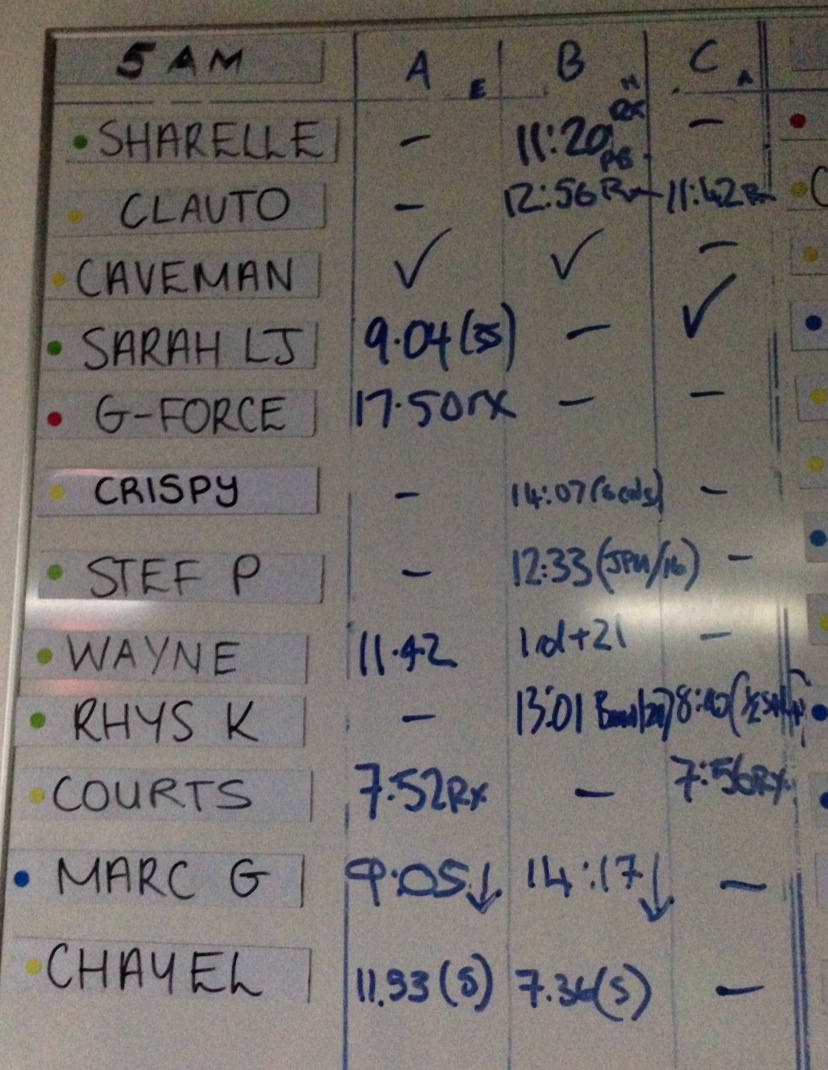 5 AM A E B H C A
SHARELLE — 11:20 RX PB —
CLAUTO — 12:56 Rx 11:42 Rx
CAVEMAN ✓ ✓ —
SARAH LJ 9.04 (35) — ✓
G-FORCE 17.50 rx — —
CRISPY — 14:07 —
STEF P — 12:33 —
WAYNE 11.42 1rd+21 —
RHYS K — 13:01 8:40
COURTS 7.52 Rx — 7:56 Rx
MARC G 9.05 ↓ 14:17 ↓ —
CHAYEL 11.33 (S) 7.36 (S) —
C